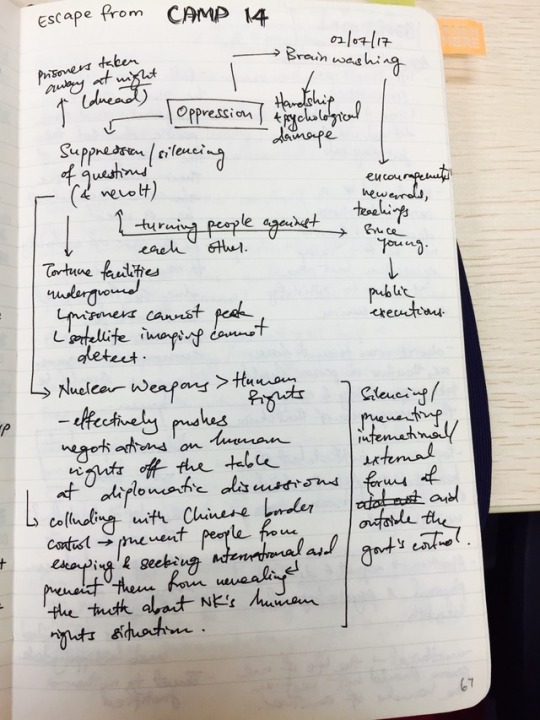 Escape from CAMP 14
02/07/17
prisoners taken
away at night
(dread)
Oppression
Brainwashing
Hardship
+ psychological
damage
Suppression/silencing
of questions
(& revolt)
encouragements
rewards,
teachings
since
young.
turning people against
each other.
public
executions.
Torture facilities
underground
prisoners cannot peek
satellite imaging cannot
detect.
Nuclear Weapons > Human
Rights
- effectively pushes
negotiations on human
rights off the table
at diplomatic discussions
colluding with Chinese border
control → prevent people from
escaping & seeking international aid
prevent them from revealing
the truth about NK's human
rights situation.
Silencing/
preventing
international/
external
forms of
aid
outside the
govt's control.
67